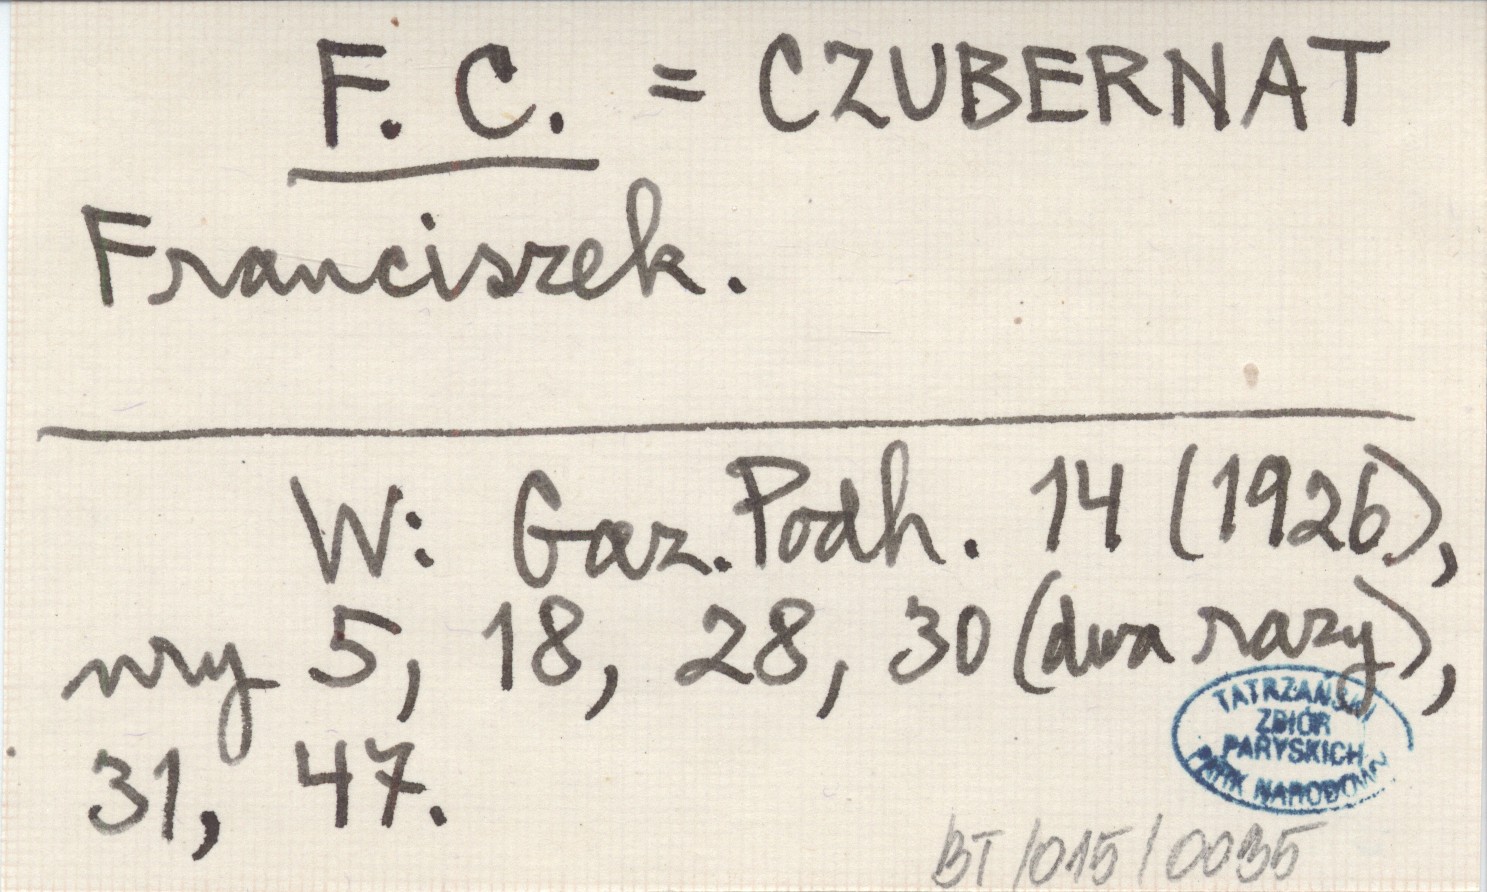 F. C. = CZUBERNAT
Franciszek.
W: Gaz. Podh. 14 (1926),
nry 5, 18, 28, 30 (dwa razy),
31, 47.
TATRZAŃSKI
ZBIÓR
PARYSKICH
PARK NARODOWY
BT/015/0035